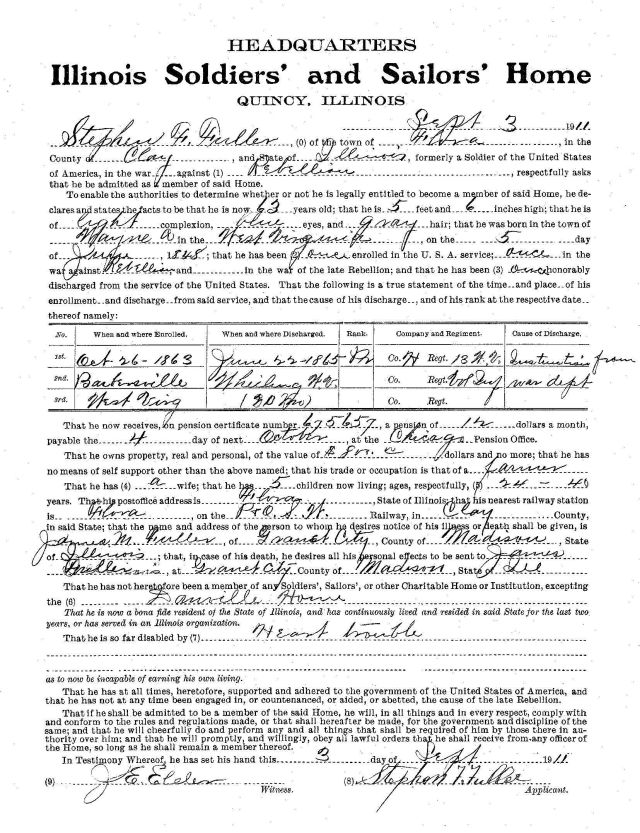 HEADQUARTERS
Illinois Soldiers' and Sailors' Home
QUINCY, ILLINOIS
Sept 3 1911
Stephen F. Fuller, (0) of the town of Flora, in the
County of Clay, and State of Illinois, formerly a Soldier of the United States
of America, in the war against (1) Rebellion, respectfully asks
that he be admitted as a member of said Home.
To enable the authorities to determine whether or not he is legally entitled to become a member of said Home, he de-
clares and states the facts to be that he is now 63 years old; that he is 5 feet and 6 inches high; that he is
of light complexion, blue eyes, and gray hair; that he was born in the town of
Wayne in the West Virginia, on the 5 day
of, 1848; that he has (2) once enrolled in the U. S. service; once in the
war against Rebellion and in the war of the late Rebellion; and that he has been (3) once honorably
discharged from the service of the United States. That the following is a true statement of the time and place of his
enrollment and discharge from said service, and that the cause of his discharge, and of his rank at the respective date
thereof namely:
No. When and where Enrolled. When and where Discharged. Rank. Company and Regiment. Cause of Discharge.
1st. Oct 26 - 1863 June 22 - 1865 Co. H Regt. 13 W.V. Instruction from
2nd. Barbersville Wheeling W.V. Co. Regt. Vol Inf war dept
3rd. West Virg Co. Regt.
That he now receives, on pension certificate number 675657, a pension of 12 dollars a month,
payable the 4 day of next October, at the Chicago Pension Office.
That he owns property, real and personal, of the value of dollars and no more; that he has
no means of self support other than the above named; that his trade or occupation is that of a farmer
That he has (4) a wife; that he has 5 children now living; ages, respectfully, (5) 24 - 40
years. That his postoffice address is Flora, State of Illinois; that his nearest railway station
is Flora, on the B & O. S. W. Railway, in Clay County,
in said State; that the name and address of the person to whom he desires notice of his illness or death shall be given, is
James M. Fuller, of Granet City, County of Madison, State
of Illinois; that, in case of his death, he desires all his personal effects to be sent to James
Fuller, at Granet City County of Madison, State of Ill
That he has not heretofore been a member of any Soldiers', Sailors', or other Charitable Home or Institution, excepting
the (6) Danville Home
That he is now a bona fide resident of the State of Illinois, and has continuously lived and resided in said State for the last two
years, or has served in an Illinois organization.
That he is so far disabled by (7) Heart trouble
as to now be incapable of earning his own living.
That he has at all times, heretofore, supported and adhered to the government of the United States of America, and
that he has not at any time been engaged in, or countenanced, or aided, or abetted, the cause of the late Rebellion.
That if he shall be admitted to be a member of the said Home, he will, in all things and in every respect, comply with
and conform to the rules and regulations made, or that shall hereafter be made, for the government and discipline of the
same; and that he will cheerfully do and perform any and all things that shall be required of him by those there in au-
thority over him; and that he will promptly, and willingly, obey all lawful orders that he shall receive from any officer of
the Home, so long as he shall remain a member thereof.
In Testimony Whereof, he has set his hand this 3 day of Sept 1911
(9) J. E. Elder (8) Stephon F. Fuller
Witness. Applicant.